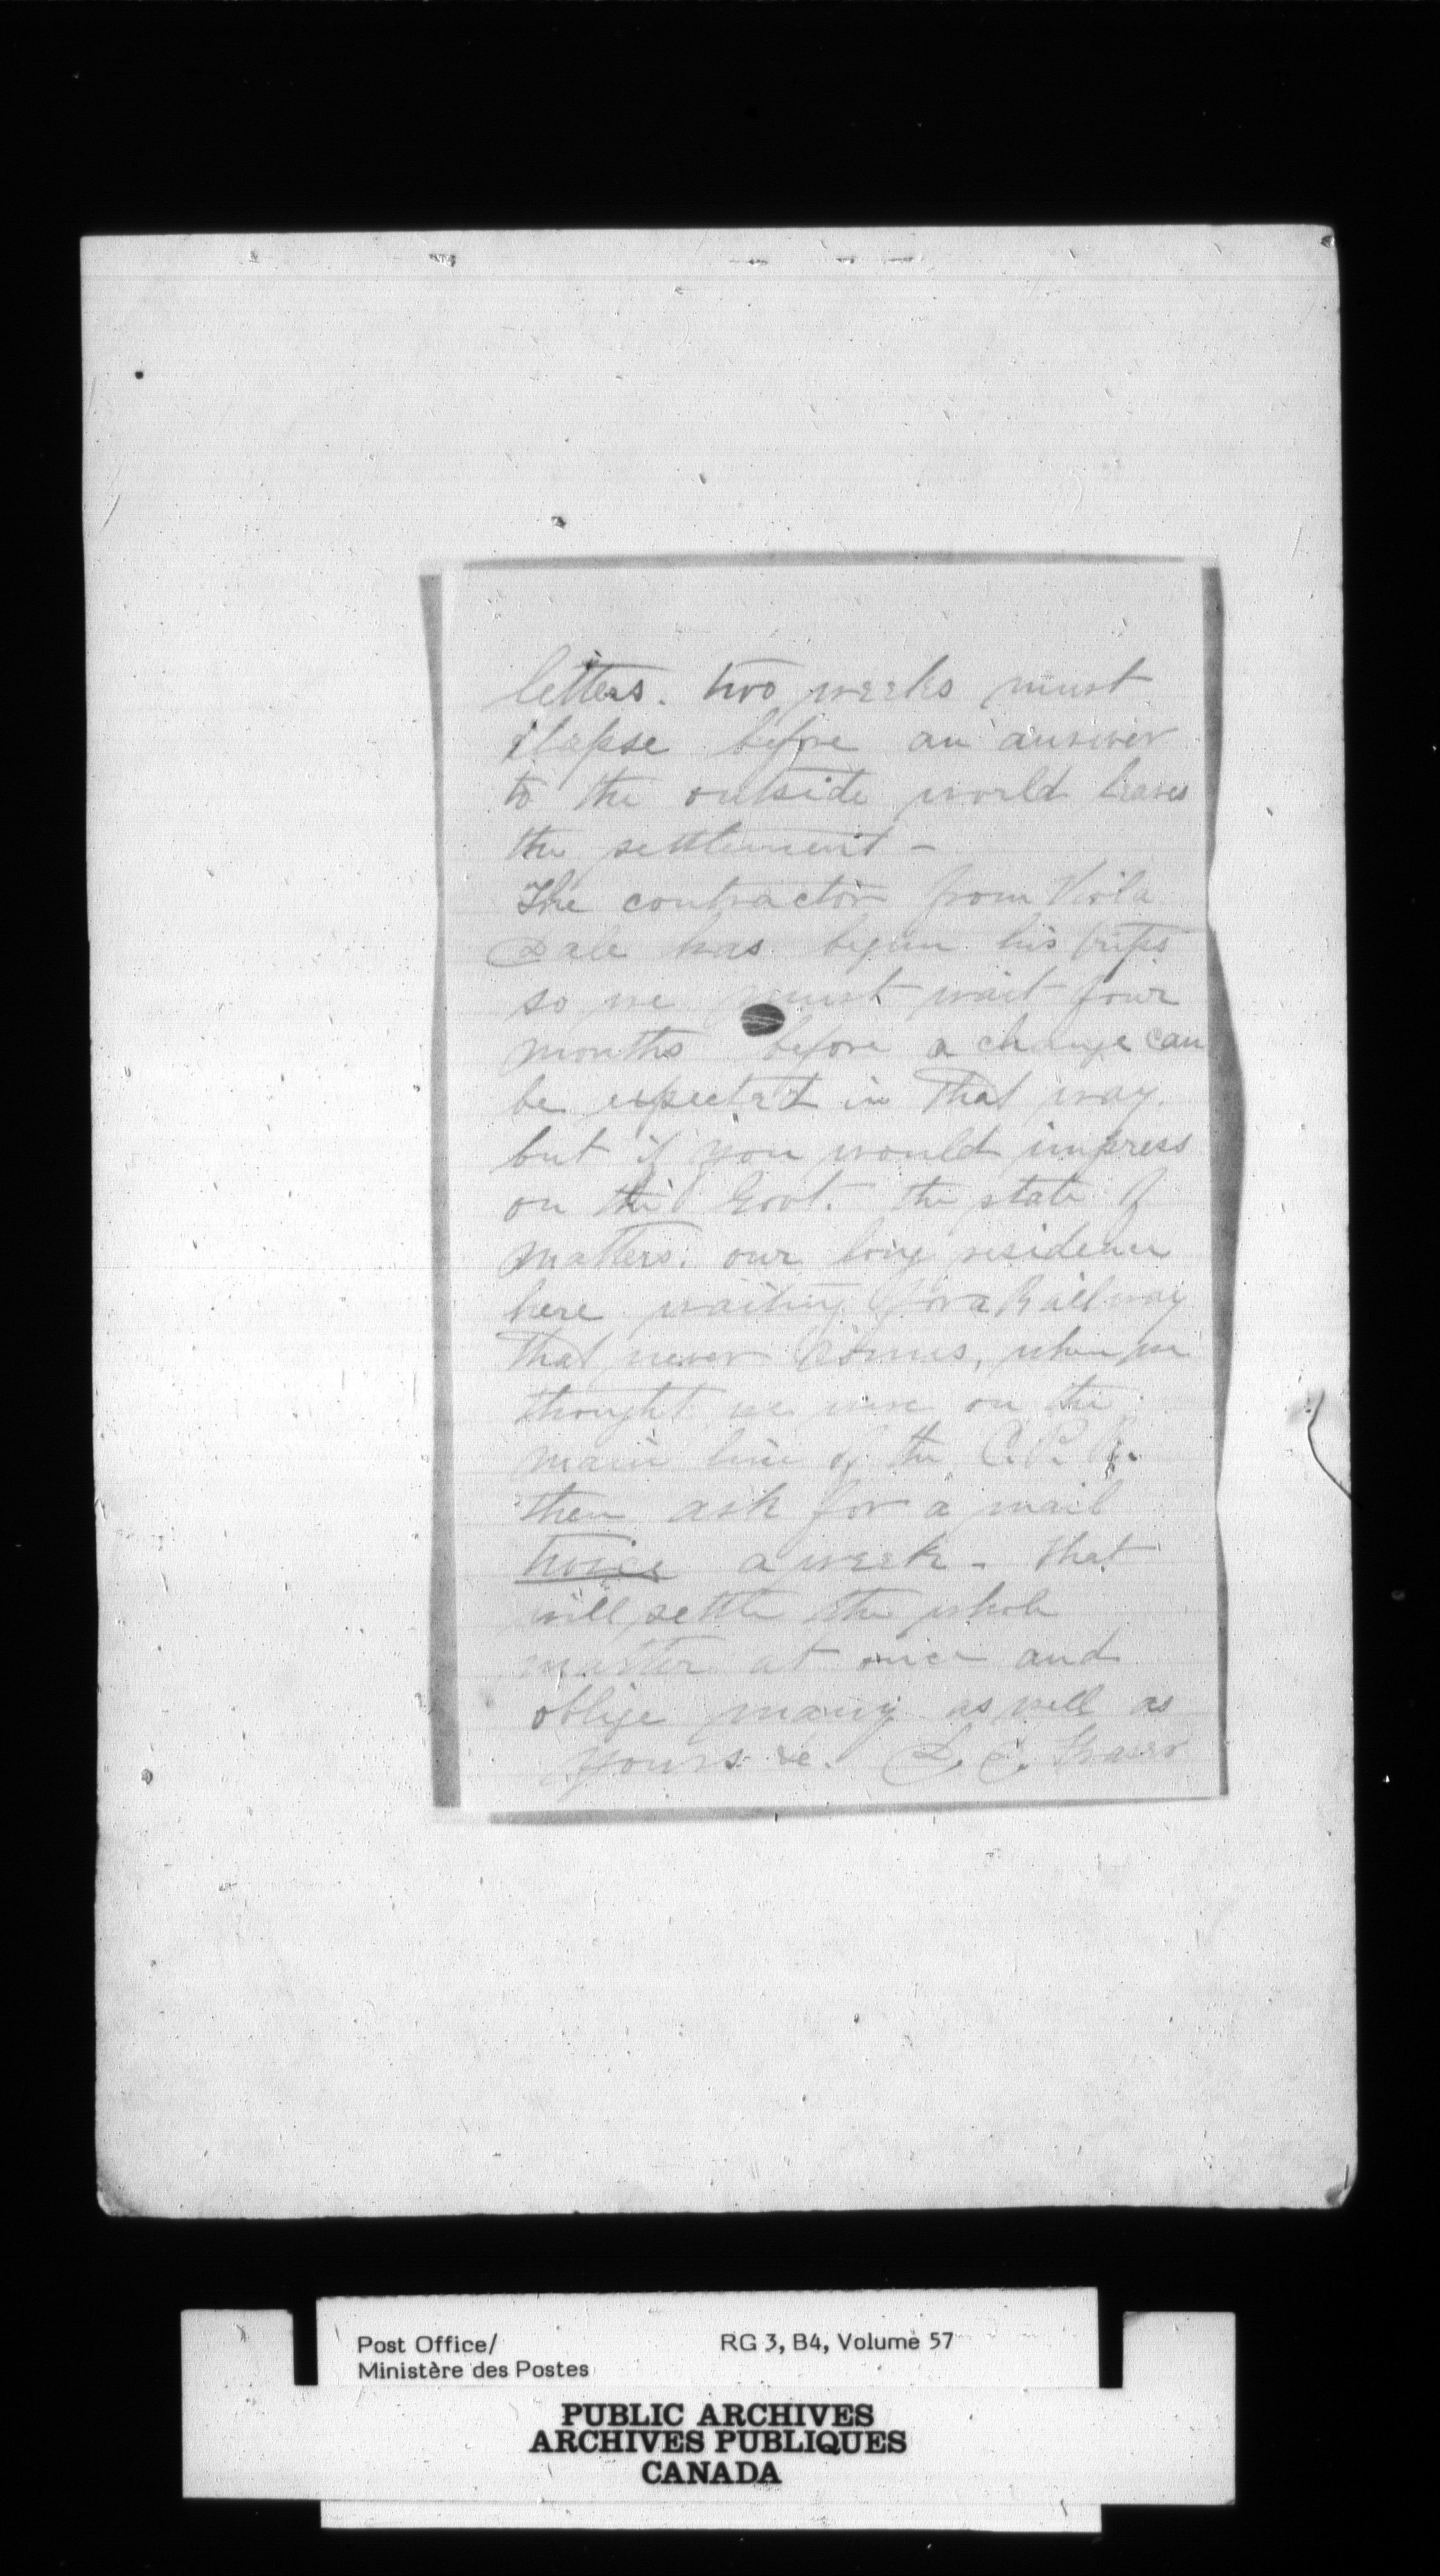 letters. two weeks must
elapse before an answer
to the outside world leaves
the settlement -
The contractor from Viola
Dale has begun his trips
so we must wait four
months before a change can
be expected in that way.
but if you would impress
on the Govt. the state of
matters. our long residence
here waiting for a Railway
that never comes, when we
thought we were on the
main line of the C.P.R.
then ask for a mail
twice a week - that
will settle the whole
matter at once and
oblige many as well as
yours &c. D. C.
Post Office/
Ministère des Postes
RG 3, B4, Volume 57
PUBLIC ARCHIVES
ARCHIVES PUBLIQUES
CANADA